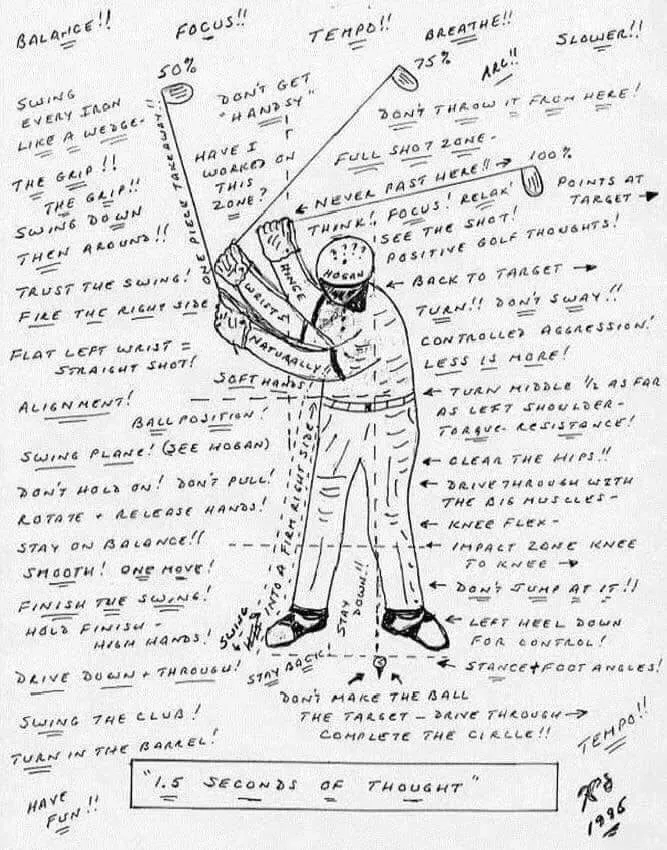 BALANCE!!
FOCUS!!
TEMPO!!
BREATHE!!
SLOWER!!
50%
75%
ARC!!
SWING
EVERY IRON
LIKE A WEDGE-
DON'T GET
"HANDSY"
DON'T THROW IT FROM HERE!
ONE PIECE TAKEAWAY..!!
HAVE I
WORKED ON
THIS
ZONE?
FULL SHOT ZONE-
100%
THE GRIP!!
THE GRIP!!
NEVER PAST HERE!!
POINTS AT
TARGET
SWING DOWN
THEN AROUND!!
THINK!, FOCUS! RELAX!
SEE THE SHOT!
POSITIVE GOLF THOUGHTS!
????
HOGAN
TRUST THE SWING!
FIRE THE RIGHT SIDE
HINGE
WRISTS
NATURALLY!!
BACK TO TARGET
TURN!! DON'T SWAY!!
CONTROLLED AGGRESSION!
LESS IS MORE!
FLAT LEFT WRIST =
STRAIGHT SHOT!
SOFT HANDS!
ALIGNMENT!
BALL POSITION!
TURN MIDDLE 1/2 AS FAR
AS LEFT SHOULDER-
TORQUE- RESISTANCE!
SWING PLANE! (SEE HOGAN)
CLEAR THE HIPS!!
DON'T HOLD ON! DON'T PULL!
DRIVE THROUGH WITH
THE BIG MUSCLES-
ROTATE + RELEASE HANDS!
KNEE FLEX-
STAY ON BALANCE!!
IMPACT ZONE KNEE
TO KNEE
SMOOTH! ONE MOVE!
DON'T JUMP AT IT!!
FINISH THE SWING!
HOLD FINISH-
HIGH HANDS!
SWING
INTO A FIRM RIGHT SIDE
STAY
DOWN!!
LEFT HEEL DOWN
FOR CONTROL!
DRIVE DOWN + THROUGH!
STAY BACK!
STANCE + FOOT ANGLES!
DON'T MAKE THE BALL
THE TARGET - DRIVE THROUGH
COMPLETE THE CIRCLE!!
SWING THE CLUB!
TURN IN THE BARREL!
TEMPO!!
"1.5 SECONDS OF THOUGHT"
HAVE
FUN!!
1996